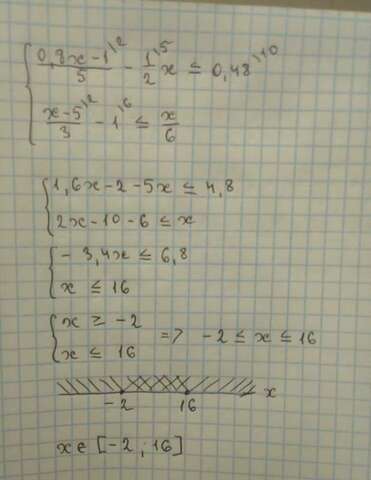 { (0,8x-1)\2 / 5 - 1\5 / 2 x ≤ 0,48\10
{ (x-5)\2 / 3 - 1\6 ≤ x/6
{ 1,6x-2-5x ≤ 4,8
{ 2x-10-6 ≤ x
{ - 3,4x ≤ 6,8
{ x ≤ 16
{ x ≥ -2
{ x ≤ 16 => -2 ≤ x ≤ 16
-2 16 x
x ∈ [-2 ; 16]